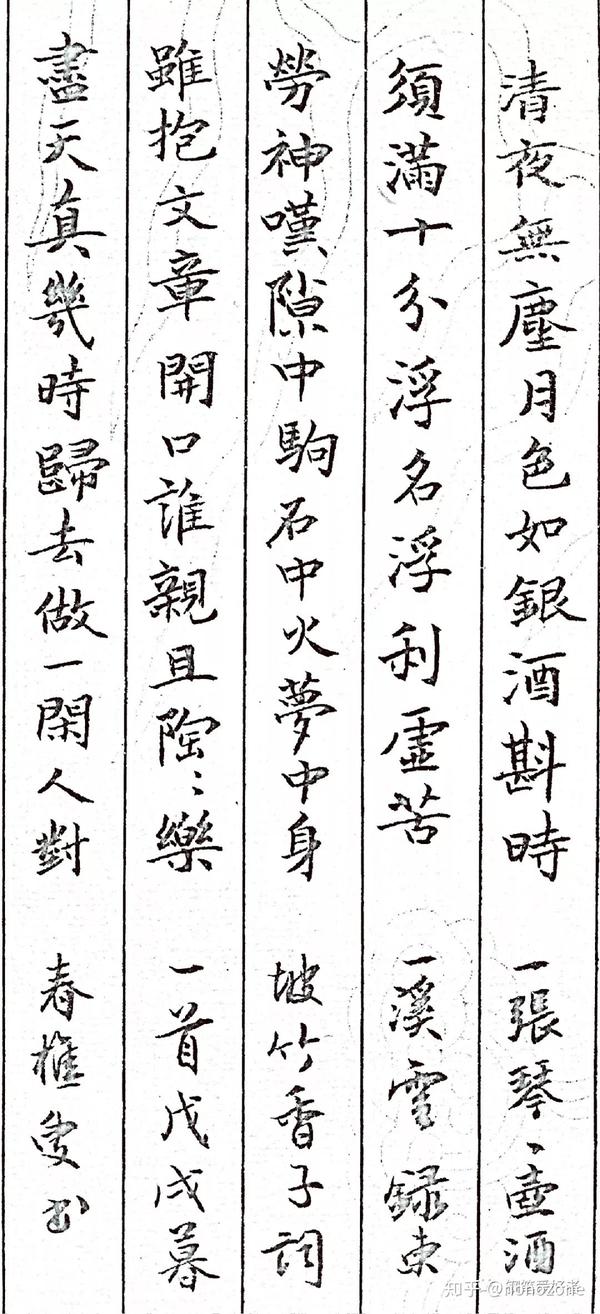 清夜無塵月色如銀酒斟時
須滿十分浮名浮利虛苦
勞神嘆隙中駒石中火夢中身
雖抱文章開口誰親且陶〻樂
盡天真幾時歸去做一閑人對
一張琴、壺酒
一溪雲録東
坡行香子詞
一首戊戌暮
春樵叟书
知乎 @nonozone